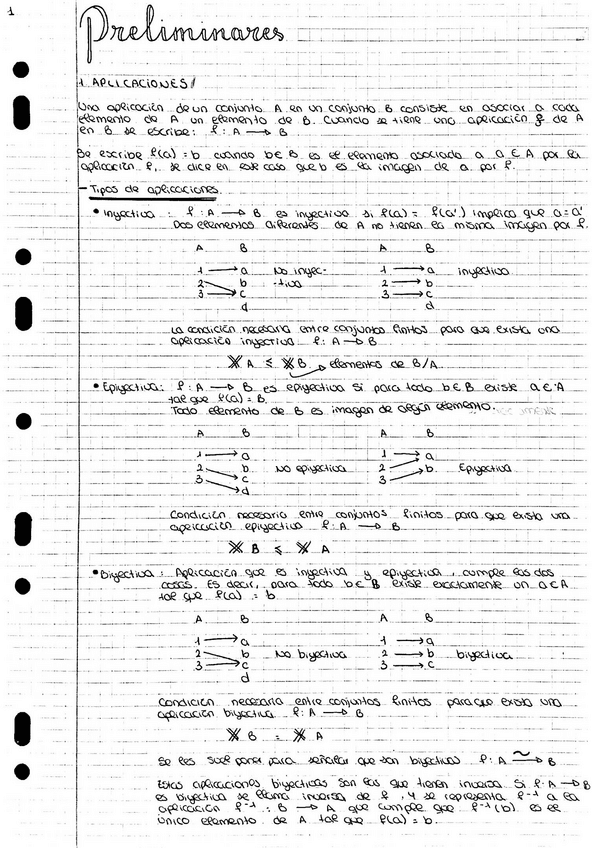 1
Preliminares
1. APLICACIONES/
Una aplicación de un conjunto A en un conjunto B consiste en asociar a cada
elemento de A un elemento de B. Cuando se tiene una aplicación f de A
en B se escribe: f: A → B
Se escribe f(a) = b cuando b ∈ B es el elemento asociado a a ∈ A por la
aplicación f, se dice en este caso que b es la imagen de a por f.
- Tipos de aplicaciones
• Inyectiva: f: A → B es inyectiva si f(a) = f(a') implica que a = a'
Dos elementos diferentes de A no tienen la misma imagen por f.
A B A B
1 → a No inyec- 1 → a inyectiva
2 b -tiva 2 → b
3 → c 3 → c
d d
La condición necesaria entre conjuntos finitos para que exista una
aplicación inyectiva f: A → B
# A ≤ # B → elementos de B/A
• Epiyectiva: f: A → B es epiyectiva si para todo b ∈ B existe a ∈ A
tal que f(a) = B.
Todo elemento de B es imagen de algún elemento.
A B A B
1 → a 1 → a
2 b No epiyectiva 2 b Epiyectiva
3 c 3
d
Condición necesaria entre conjuntos finitos para que exista una
aplicación epiyectiva f: A → B
# B ≤ # A
• Biyectiva: Aplicación que es inyectiva y epiyectiva, cumple las dos
cosas. Es decir, para todo b ∈ B existe exactamente un a ∈ A
tal que f(a) = b
A B A B
1 → a 1 → a
2 b No biyectiva 2 → b biyectiva
3 → c 3 → c
d
Condición necesaria entre conjuntos finitos para que exista una
aplicación biyectiva f: A → B
# B = # A
Se les suele poner para señalar que son biyectivas f: A ⥲ B
Estas aplicaciones biyectivas son las que tienen inversa. Si f: A → B
es biyectiva se llama inversa de f, y se representa f⁻¹ a la
aplicación f⁻¹: B → A que cumple que f⁻¹(b) es el
único elemento de A tal que f(a) = b.